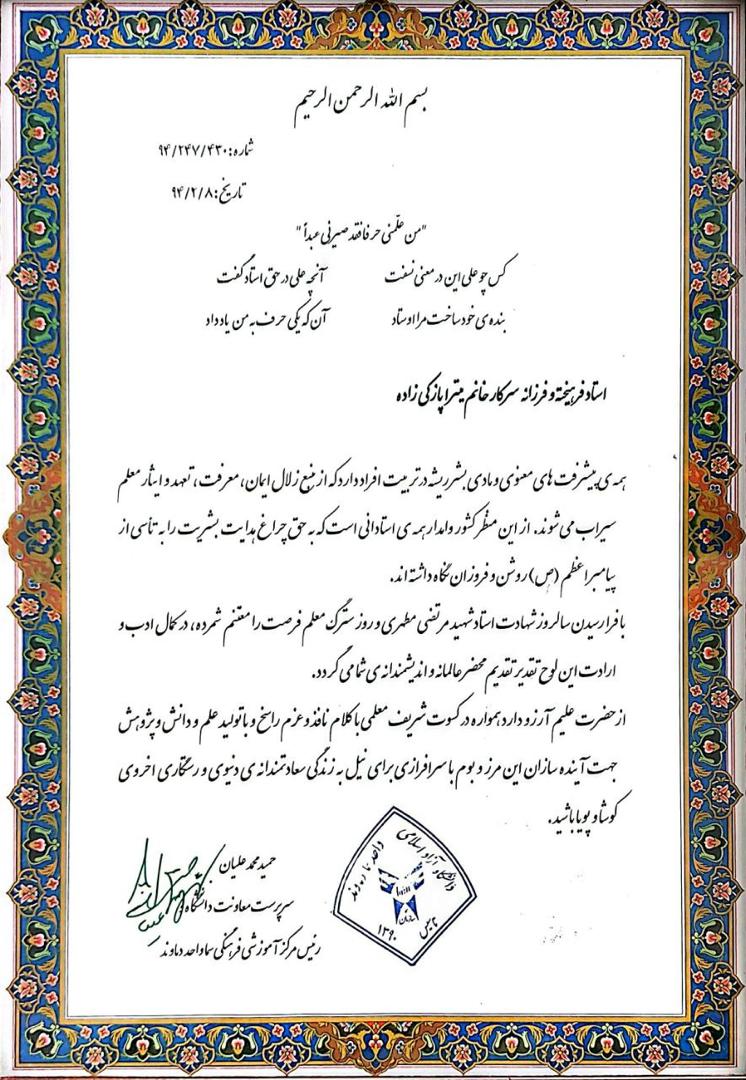 بسم الله الرحمن الرحیم
شماره: ۹۴/۲۴۷/۴۳۰
تاریخ: ۹۴/۲/۸
"من علّمنی حرفا فقد صیرنی عبداً"
کس چو علی این در معنی نسفت آنچه علی در حق استاد گفت
بنده ی خود ساخت مرا اوستاد آن که یکی حرف به من یاد داد
استاد فرهیخته و فرزانه سرکار خانم میترا پازکی زاده
همه ی پیشرفت های معنوی و مادی بشر ریشه در تربیت افراد دارد که از منبع زلال ایمان، معرفت، تعهد و ایثار معلم
سیراب می شوند. از این منظر کشور وامدار همه ی استادانی است که به حق چراغ هدایت بشریت را به تأسی از
پیامبر اعظم (ص) روشن و فروزان نگاه داشته اند.
با فرا رسیدن سالروز شهادت استاد شهید مرتضی مطهری و روز سترگ معلم فرصت را مغتنم شمرده، در کمال ادب و
ارادت این لوح تقدیر تقدیم محضر عالمانه و اندیشمندانه ی شما می گردد.
از حضرت علیم آرزو دارد همواره در کسوت شریف معلمی با کلام نافذ و عزم راسخ و با تولید علم و دانش و پژوهش
جهت آینده سازان این مرز و بوم با سرافرازی برای نیل به زندگی سعادتمندانه ی دنیوی و رستگاری اخروی
کوشا و پویا باشید.
حمید محمد علیان
سرپرست معاونت دانشگاه
رئیس مرکز آموزشی فرهنگی سما واحد دماوند
دانشگاه آزاد اسلامی
واحد دماوند
تاسیس
۱۳۹۰